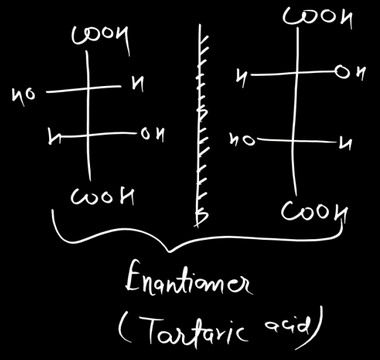 COOH
HO H
H OH
COOH
COOH
H OH
HO H
COOH
Enantiomer
(Tartaric acid)